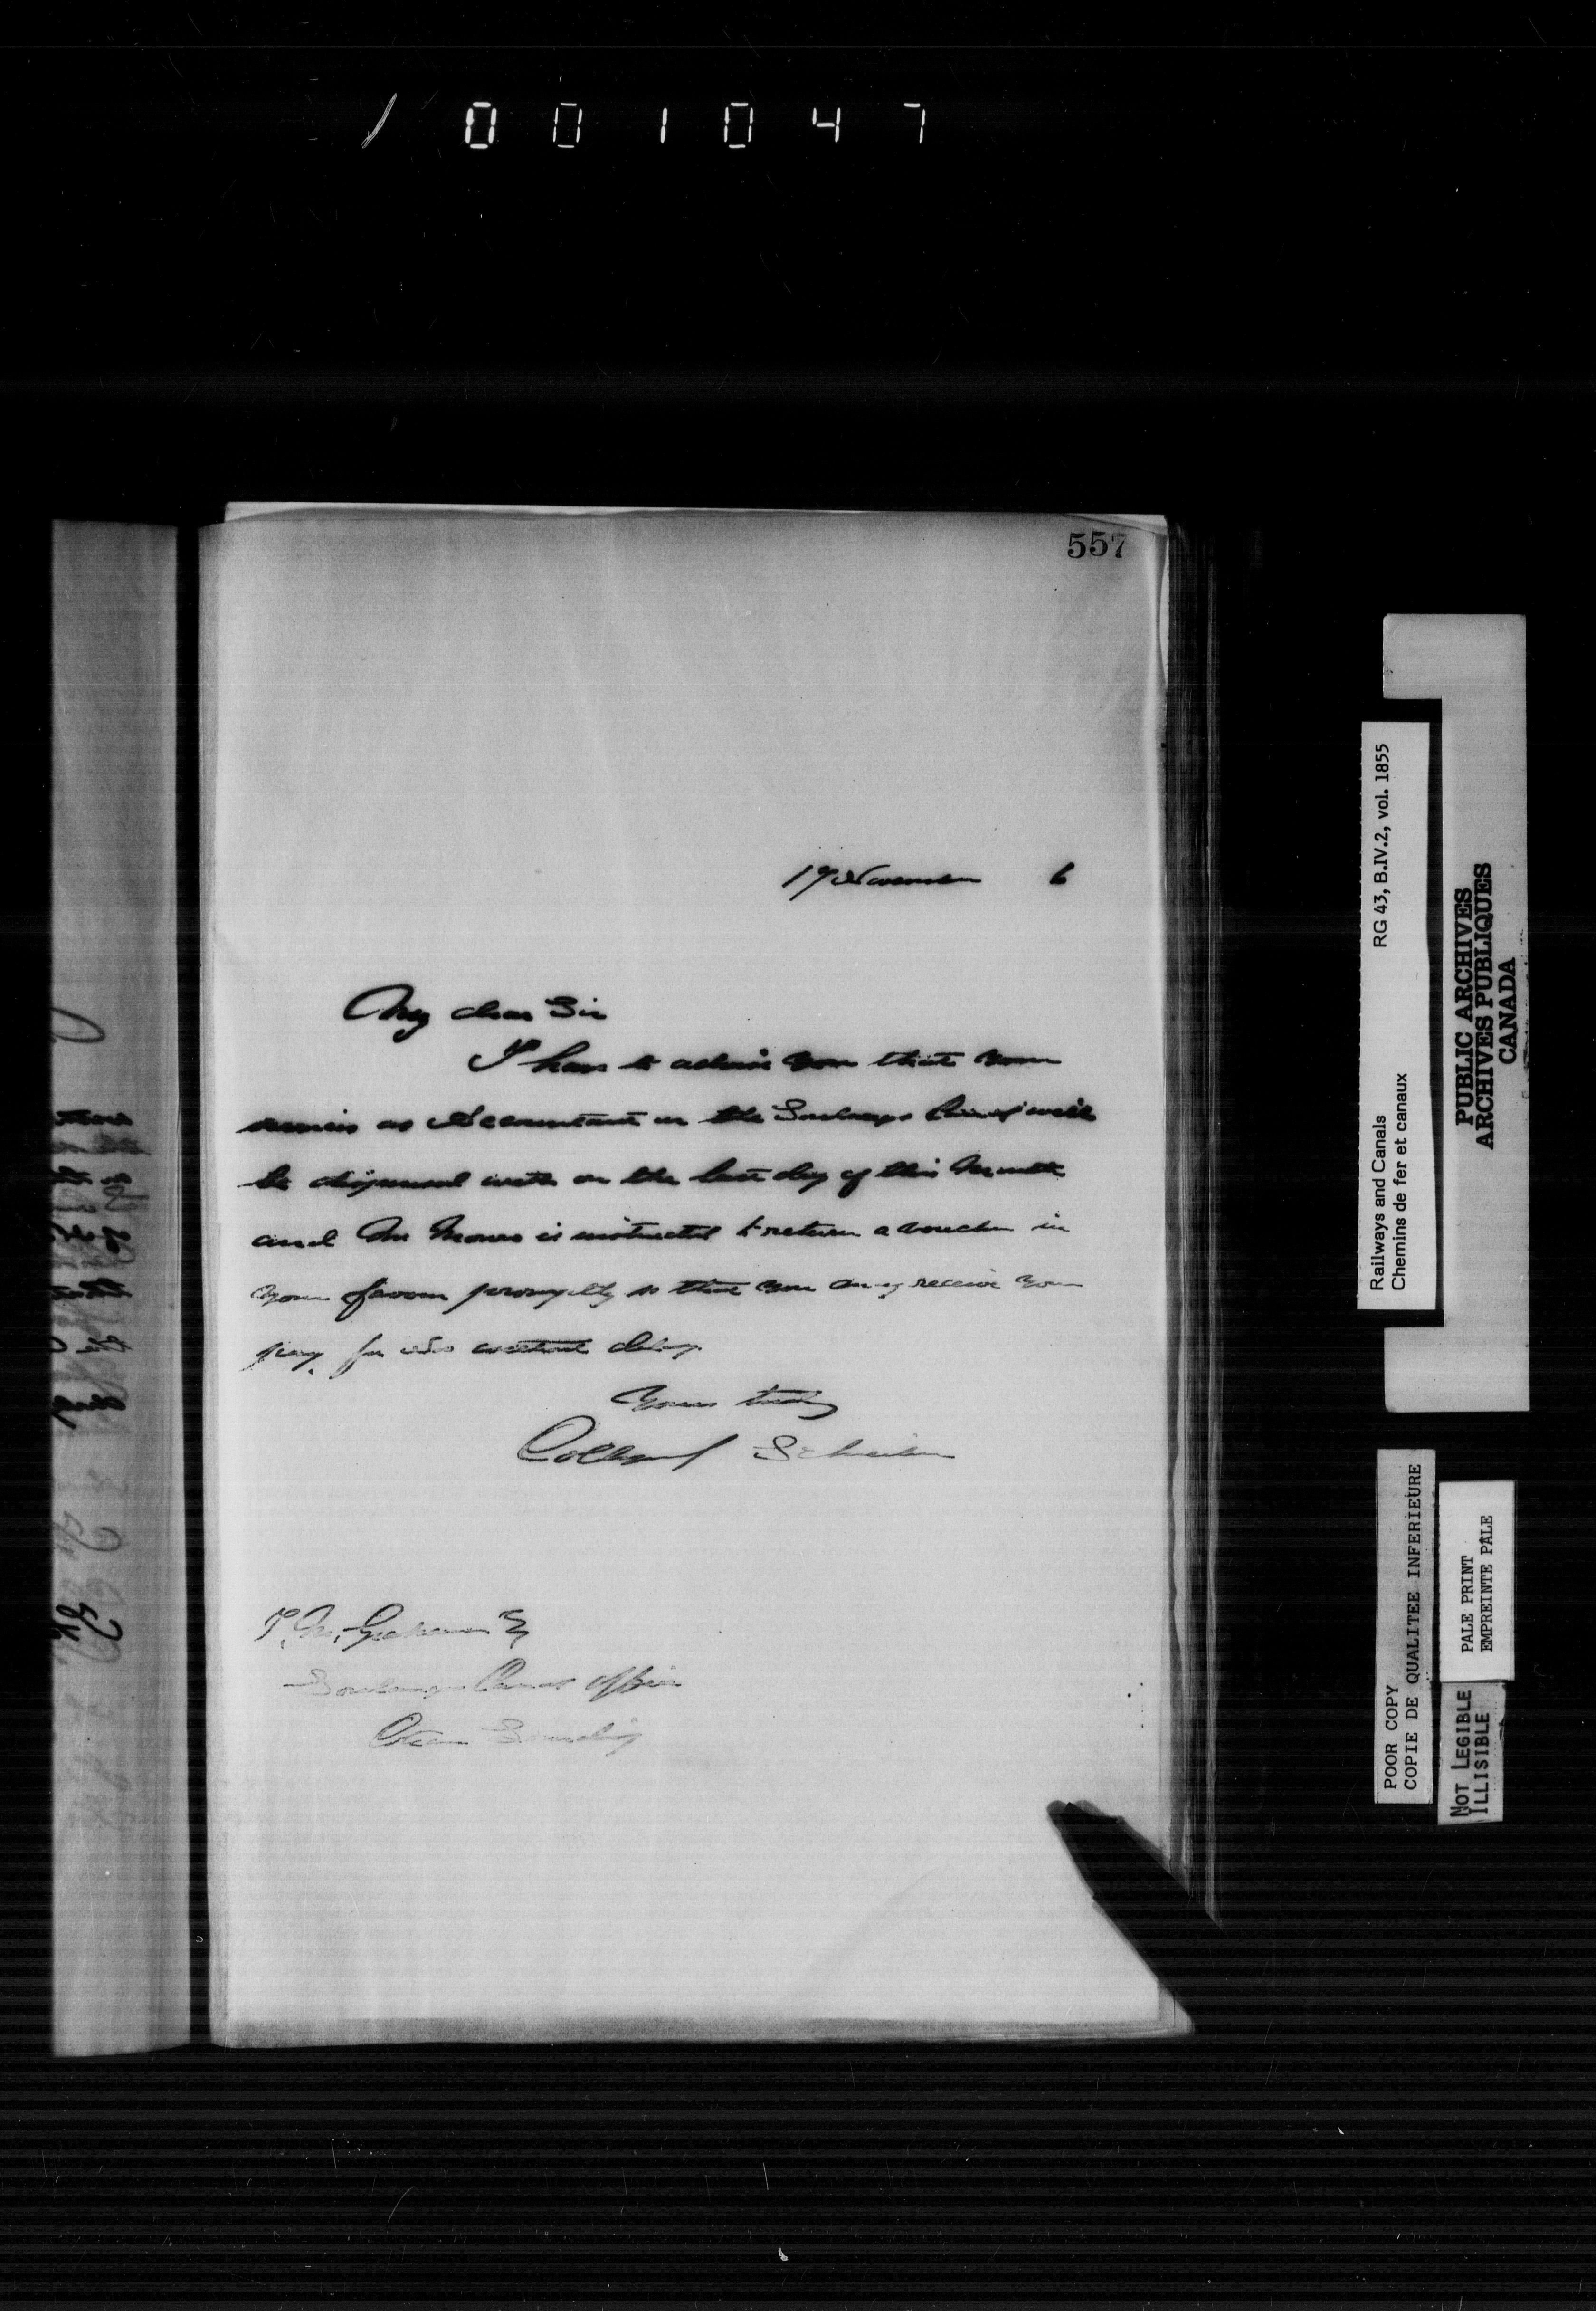 001047
557
17 November 6
My dear Sir
I have to advise you that your
services as Accountant on the Soulanges Canal will
be dispensed with on the last day of this month
and Mr Monro is instructed to return a voucher in
your favour promptly so that you may receive your
pay, for without delay.
Yours truly
Collingwood Schreiber
T. M. Graham Esq
Soulanges Canal Office
Coteau Landing
Railways and Canals RG 43, B.IV.2, vol. 1855
Chemins de fer et canaux
PUBLIC ARCHIVES
ARCHIVES PUBLIQUES
CANADA
POOR COPY
COPIE DE QUALITEE INFERIEURE
PALE PRINT
EMPREINTE PALE
NOT LEGIBLE
ILLISIBLE